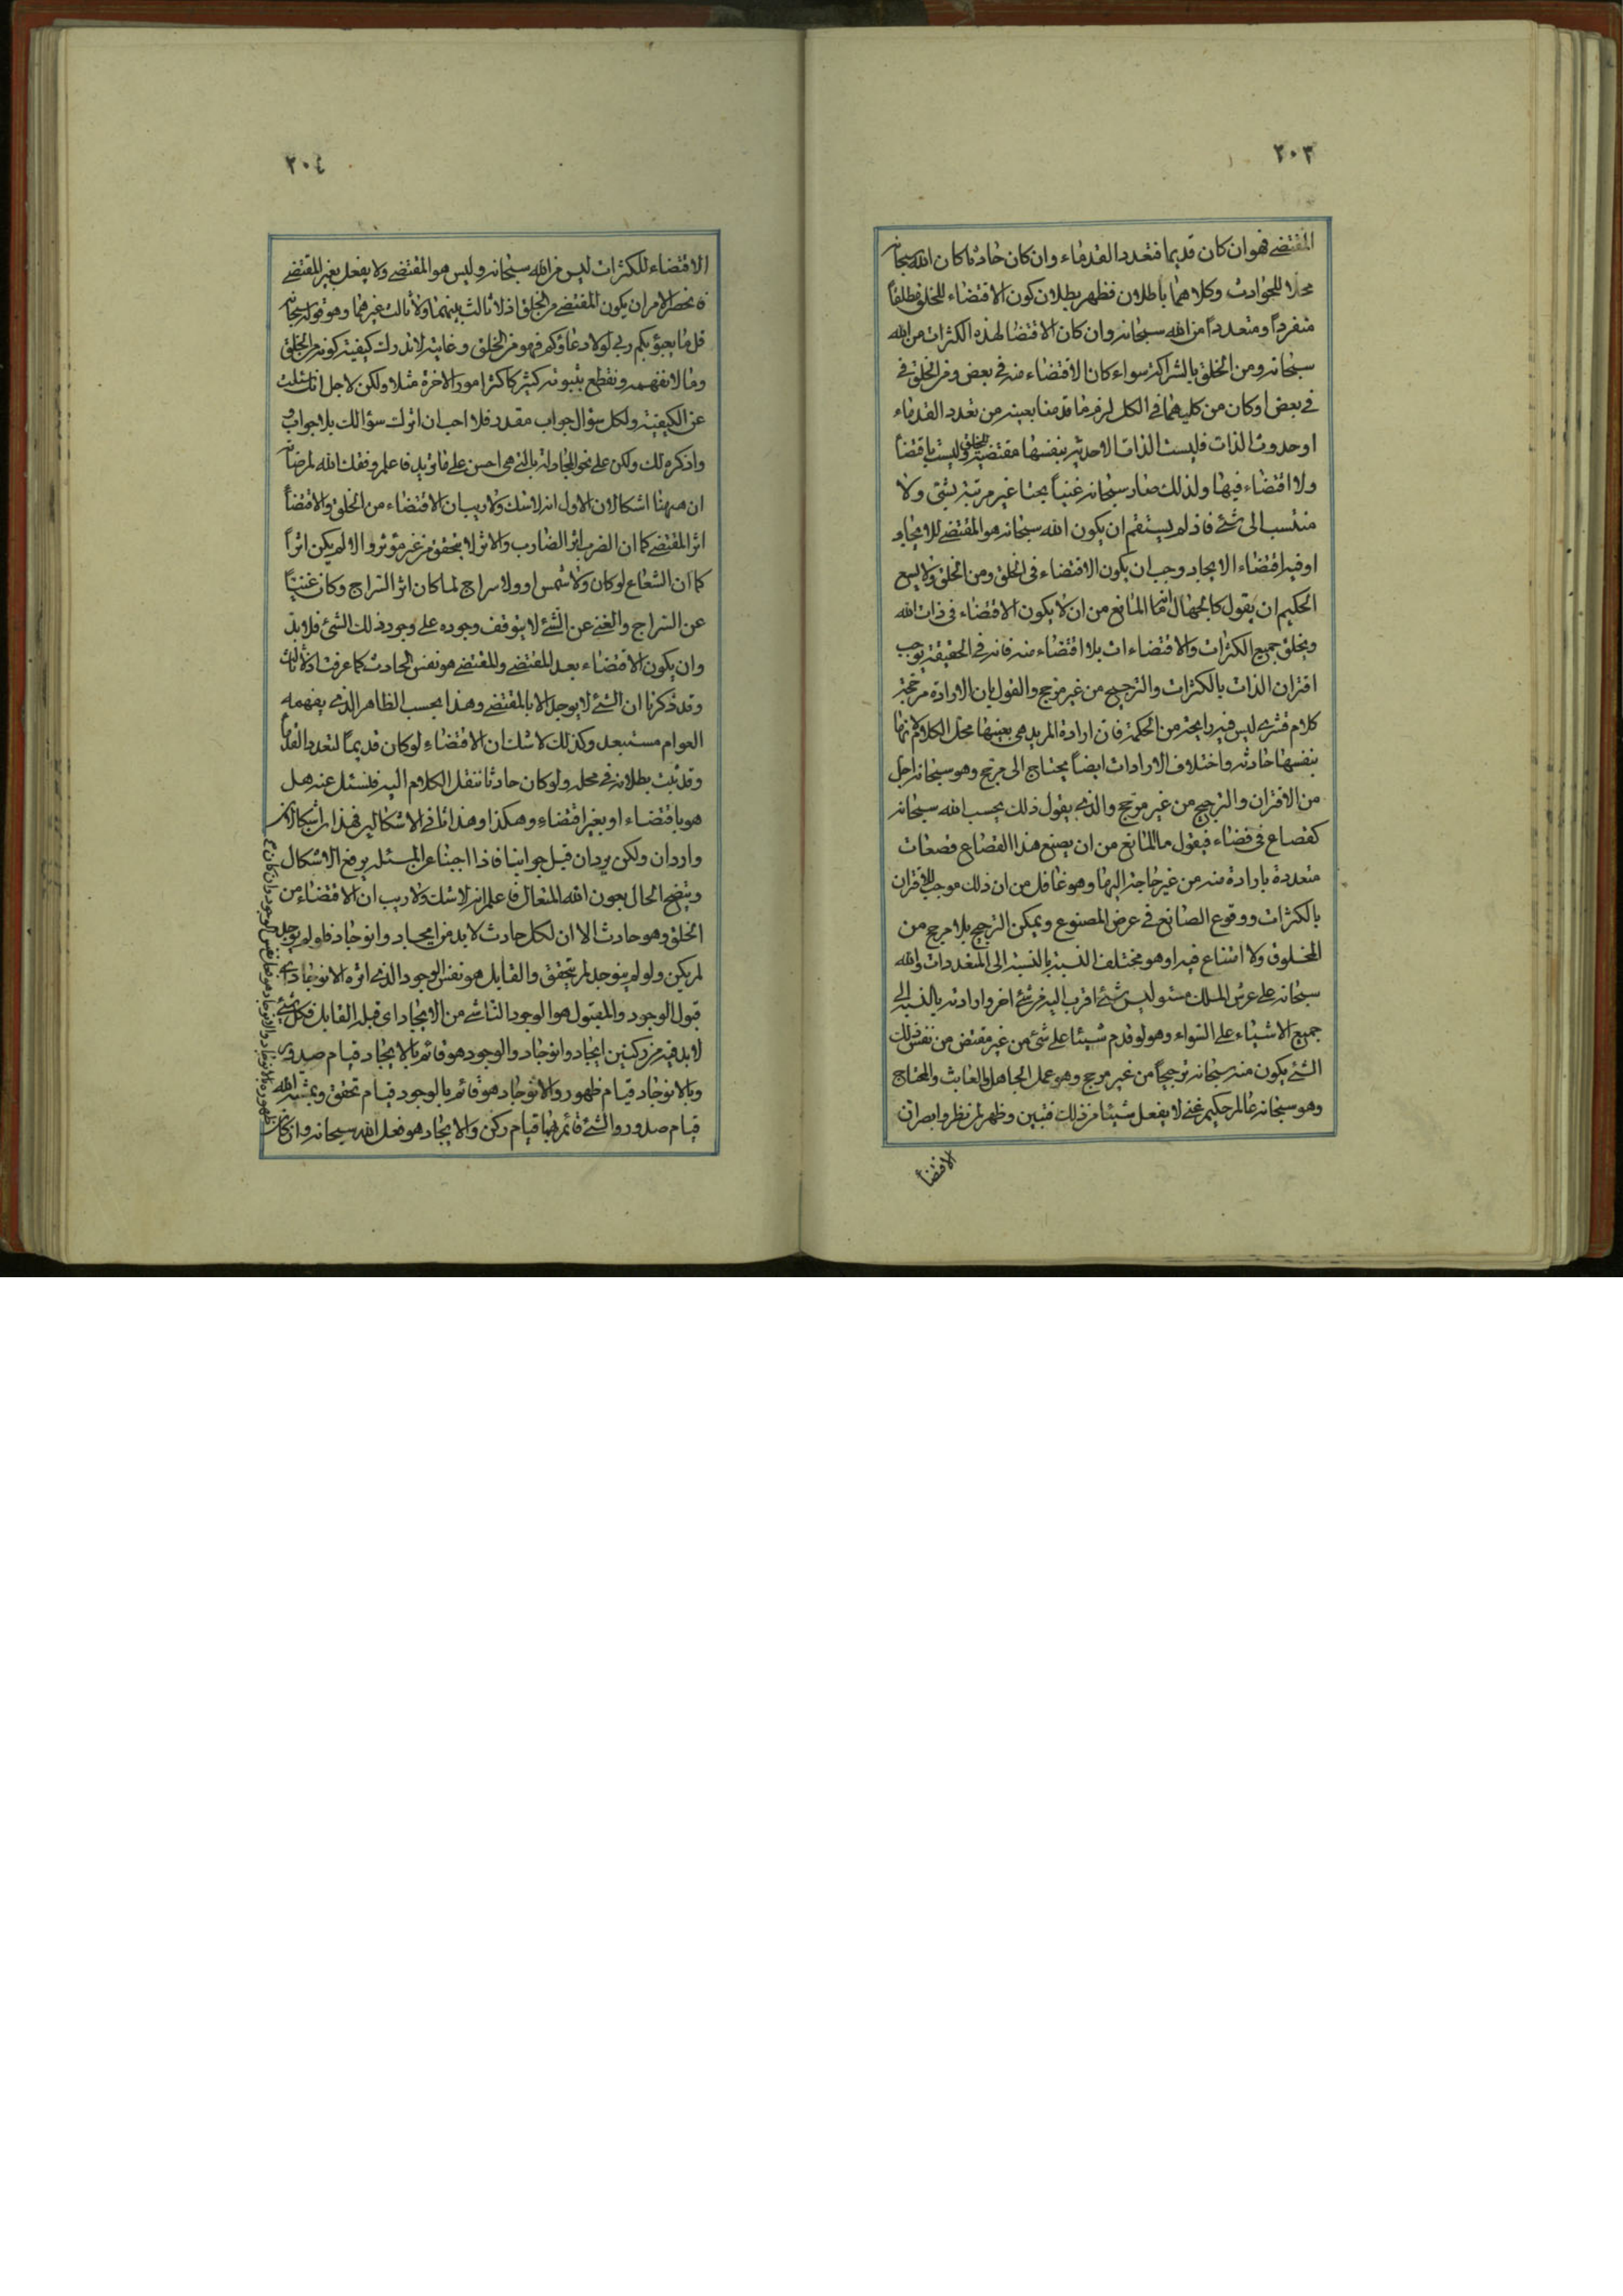 ٢٠٣
المقتضى فهو ان كان قديما فتعدد القدماء وان كان حادثا كان الله سبحانه
محلا للحوادث وكلاهما باطلان فظهر بطلان كون الاقتضاء للخلق مطلقاً
منفرداً ومتعدداً من الله سبحانه وان كان الاقتضا لهذه الكثرات من الله
سبحانه ومن الخلق بالشراكة سواء كان الاقتضاء منه في بعض ومن الخلق في
في بعض او كان من كليهما في الكل لزم ما قدمنا بعينه من تعدد القدماء
او حدوث الذات فليست الذات الاحدية بنفسها مقتضية للخلق وليست باقتضا
ولا اقتضاء فيها ولذلك صار سبحانه غنياً بحتا غير مرتبة بشئ ولا
منتسب الى شئ فاذ لم يستقم ان يكون الله سبحانه هو المقتضى للايجاد
او فيه اقتضاء الايجاد وجب ان يكون الاقتضاء في الخلق ومن الخلق ولا يسع
الحكيم ان يقول كالجهال انما المانع من ان لا يكون الاقتضاء في ذات الله
ويخلق جميع الكثرات والاقتضاءات بلا اقتضاء منه فانه في الحقيقة يوجب
اقتران الذات بالكثرات والترجيح من غير مرجح والقول بان الارادة مرجحة
كلام قشرى ليس فيه رايحة من الحكمة فان ارادة المريد هى بعينها محل الكلام لانها
بنفسها حادثه واختلاف الارادات ايضاً يحتاج الى مرجح وهو سبحانه اجل
من الاقتران والترجيح من غير مرجح والذى يقول ذلك يحسب الله سبحانه
كقصاع في فضاء فيقول ما المانع من ان يصنع هذا القصاع قصعات
متعددة بارادة منه من غير حاجة اليها وهو غافل من ان ذلك موجب للاقتران
بالكثرات ووقوع الصانع في عرض المصنوع ويمكن الترجيح بلا مرجح من
المخلوق ولا امتناع فيه اوهو مختلف النسبة بالنسبة الى المتعددات والله
سبحانه على عرش الملك مستو ليس شئ اقرب اليه من شئ اخر وارادته بالنسبة الى
جميع الاشياء على السواء وهو لو قدم شيئا على شئ من غير مقتض من نفس ذلك
الشئ يكون منه سبحانه ترجيحاً من غير مرجح وهو عمل الجاهل والعابث والمحتاج
وهو سبحانه عالم حكيم غنى لا يفعل شيئا من ذلك فتبين وظهر لمن نظر وابصر ان
الاقتضا
٢٠٤
الاقتضاء للكثرات ليس من الله سبحانه وليس هو المقتضى ولا يفعل بغير المقتضى
فانحصر الامر ان يكون المقتضى من الخلق اذ لا ثالث بينهما ولا ثالث غيرهما وهو قوله سبحانه
قل ما يعبؤ بكم ربى لولا دعاؤكم فهو من الخلق وغايته لا ندرك كيفية كونه من الخلق
وما لا نفهمه ونقطع بثبوته كثير كاكثر امور الاخرة مثلا ولكن لاجل انك سئلت
عن الكيفية ولكل سؤال جواب مقدد فلا احب ان اترك سؤالك بلا جواب
واذكره لك ولكن على نحو المجادلة بالتى هى احسن على ما تريد فاعلم وفقك الله لمرضاته
ان ههنا اشكالان الاول انه لا شك ولا ريب ان الاقتضاء من الخلق والاقتضاً
اثر المقتضى كما ان الضرب اثر الضارب والاثر لا يتحقق من غير مؤثر والا لم يكن اثراً
كما ان الشعاع لو كان ولا شمس او ولا سراج لما كان اثر السراج وكان غنيّاً
عن السراج والغنى عن الشئ لا يتوقف وجوده على وجود ذلك الشئ فلا بد
وان يكون الاقتضاء بعد المقتضى والمقتضى هو نفس الحادث كما عرفت اذ لا ثالث
وقد ذكرنا ان الشئ لا يوجد الا بالمقتضى وهذا بحسب الظاهر الذى يفهمه
العوام مستبعد وكذلك لا شك ان الاقتضاء لو كان قديماً لتعدد القدما
وقد ثبت بطلانه في محله ولو كان حادثا ننقل الكلام اليه فنسئل عنه هل
هو باقتضاء او بغير اقتضاء وهكذا وهذا ثانى الاشكالين فهذان اشكالان
واردان ولكن يردان قبل جوابنا فاذا اجبنا عن المسئله يرفع الاشكال
ويتضح الحال بعون الله المتعال فاعلم انه لا شك ولا ريب ان الاقتضاء من
الخلق وهو حادث الا ان لكل حادث لا بد من ايجاد وانوجاد فلو لم يوجد
لم يكن ولو لم ينوجد لم يتحقق والقابل هو نفس الوجود الذى اثره الانوجاد اى
قبول الوجود والمقبول هو الوجود الناشى من الايجاد اى قبله القابل فكل شئ
لا بد فيه من ركنين ايجاد وانوجاد والوجود هو قائم بالايجاد قيام صدور
وبالانوجاد قيام ظهور والانوجاد هو قائم بالوجود قيام تحقق وبمشية الله
قيام صدور والشئ قائم بهما قيام ركن والايجاد هو فعل الله سبحانه وان كان